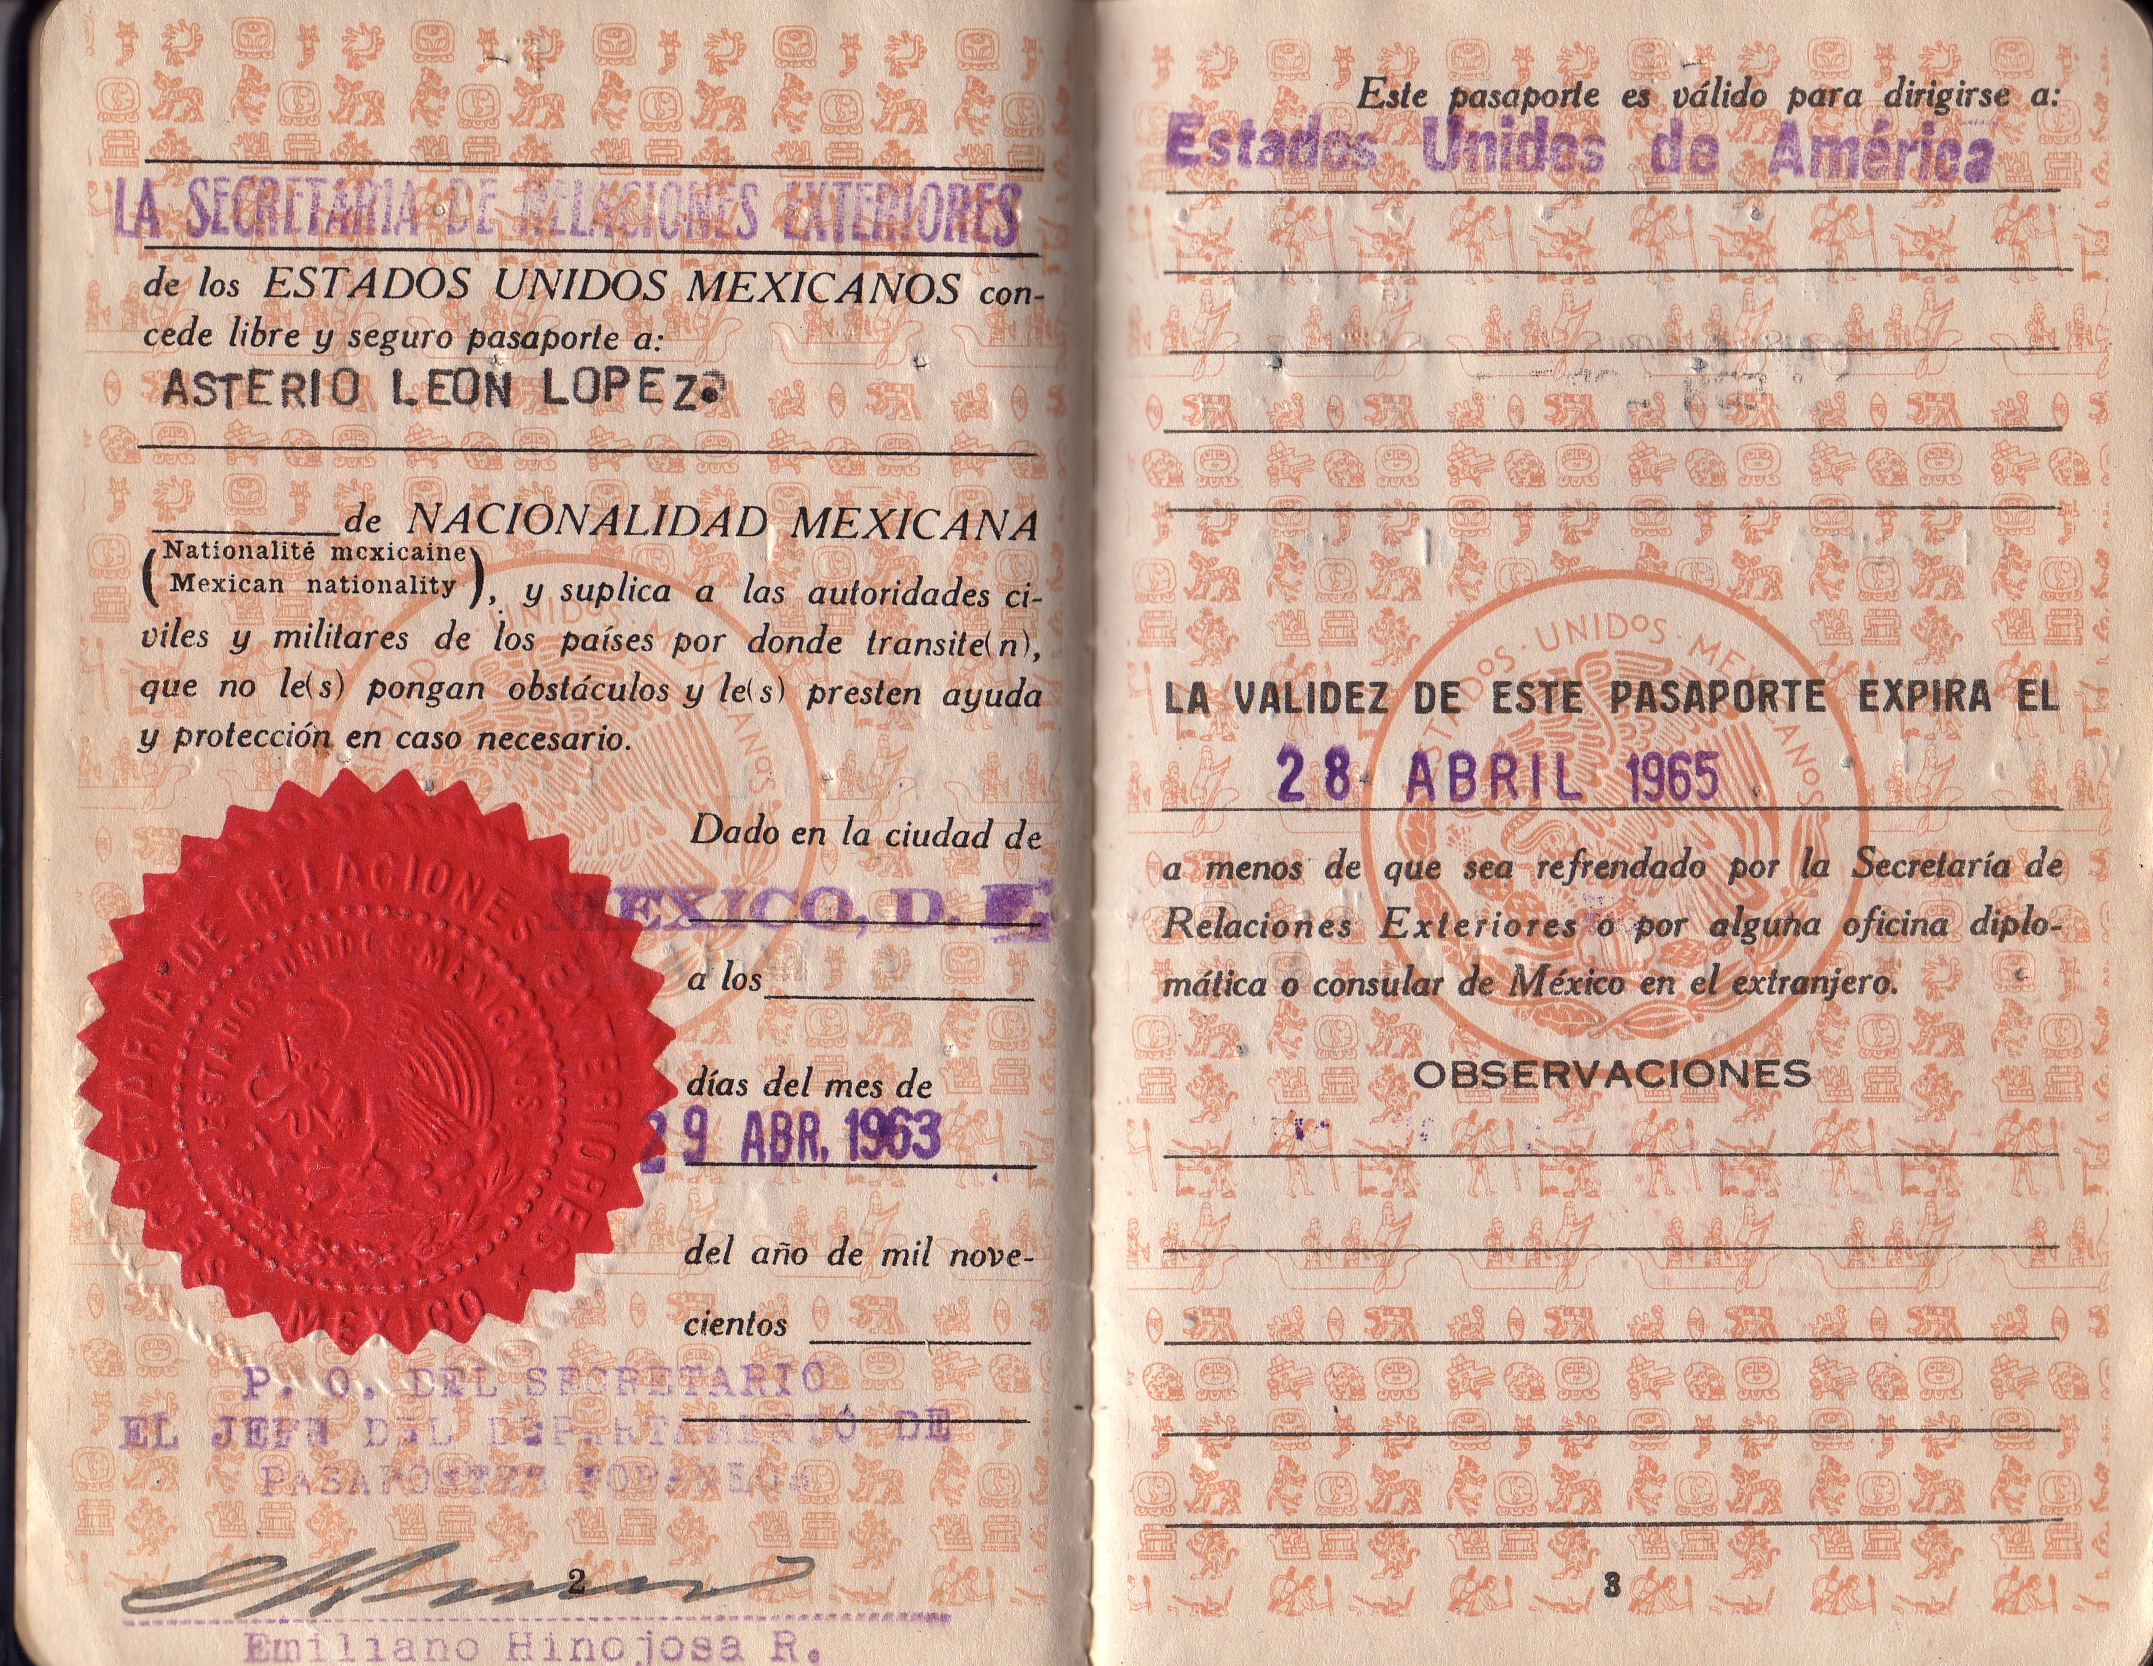 LA SECRETARIA DE RELACIONES EXTERIORES
de los ESTADOS UNIDOS MEXICANOS con-
cede libre y seguro pasaporte a:
ASTERIO LEON LOPEZ.
de NACIONALIDAD MEXICANA
(Nationalité mexicaine
Mexican nationality), y suplica a las autoridades ci-
viles y militares de los países por donde transite(n),
que no le(s) pongan obstáculos y le(s) presten ayuda
y protección en caso necesario.
Dado en la ciudad de
MEXICO, D. F.
a los
días del mes de
29 ABR. 1963
del año de mil nove-
cientos
SECRETARIA DE RELACIONES EXTERIORES
ESTADOS·UNIDOS·MEXICANOS
MEXICO
P. O. DEL SECRETARIO
EL JEFE DEL DEPARTAMENTO DE
PASAPORTES
2
Emiliano Hinojosa R.
Este pasaporte es válido para dirigirse a:
Estados Unidos de América
ESTADOS·UNIDOS MEXICANOS
LA VALIDEZ DE ESTE PASAPORTE EXPIRA EL
28 ABRIL 1965
a menos de que sea refrendado por la Secretaría de
Relaciones Exteriores o por alguna oficina diplo-
mática o consular de México en el extranjero.
OBSERVACIONES
3